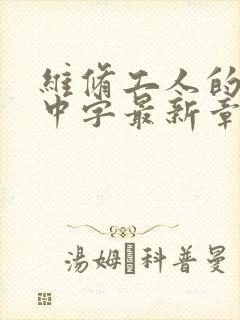 維脩工人的
中字最新章
湯姆·科普曼